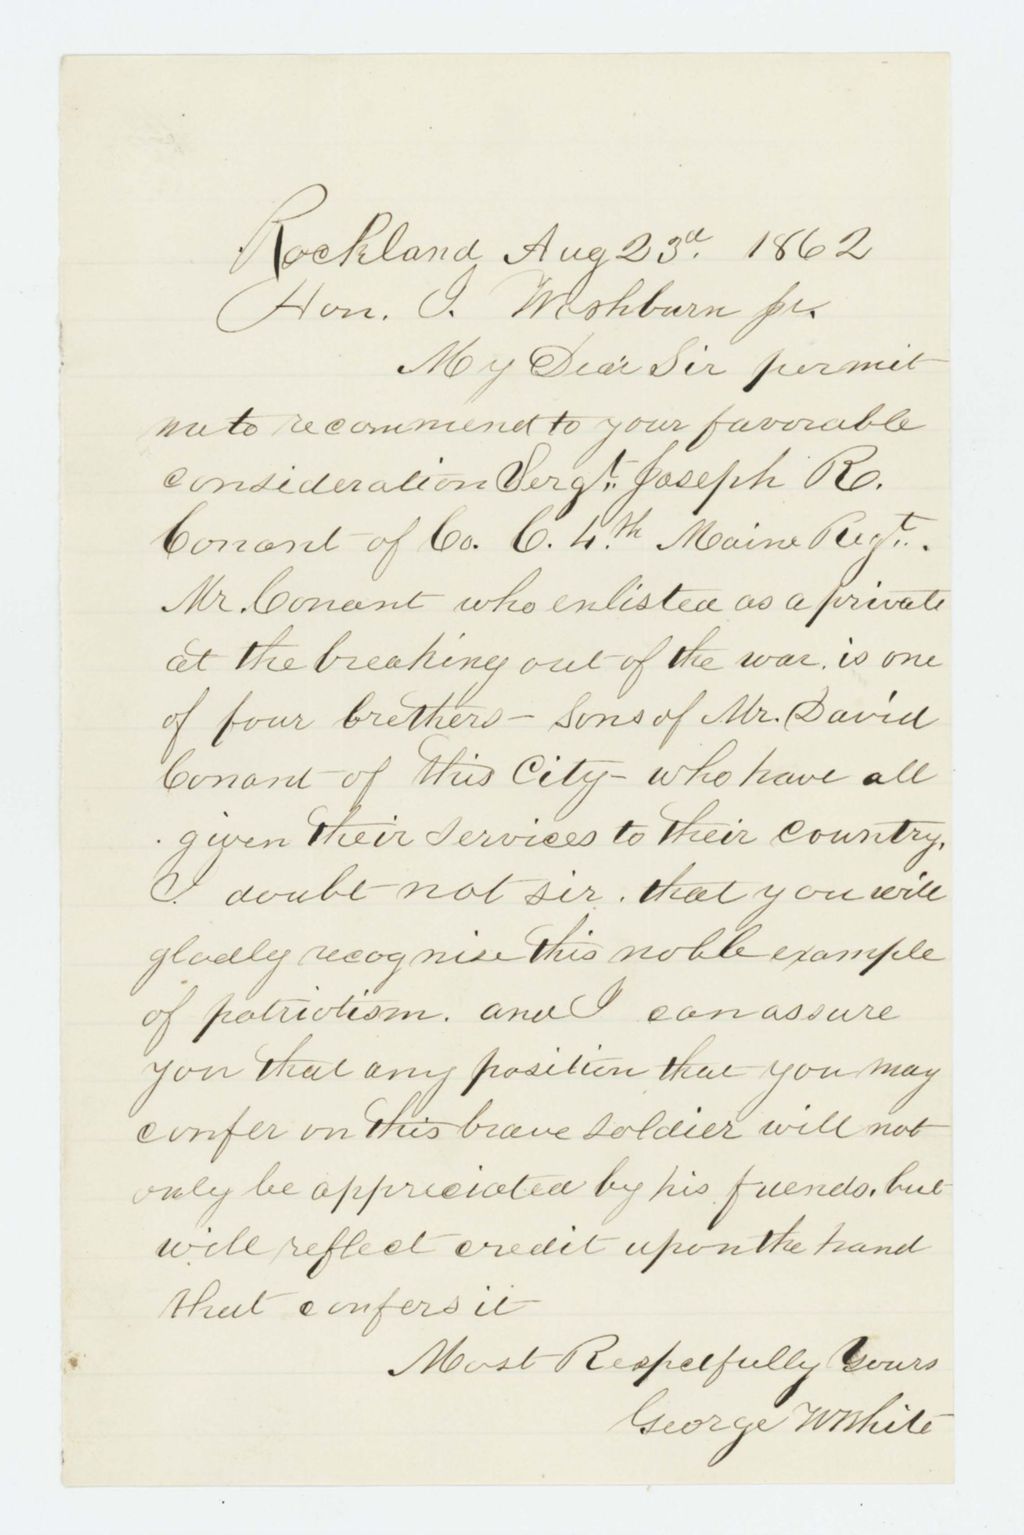 Rockland Aug 23d. 1862
Hon. I. Washburn Jr.
My Dear Sir permit
me to recommend to your favorable
consideration Sergt. Joseph R.
Conant of Co. C. 4th Maine Regt.
Mr. Conant who enlisted as a private
at the breaking out of the war, is one
of four brothers - Sons of Mr. David
Conant of this City - who have all
given their services to their country.
I doubt not sir, that you will
gladly recognise this noble example
of patriotism, and I can assure
you that any position that you may
confer on this brave soldier will not
only be appreciated by his friends, but
will reflect credit upon the hand
that confers it
Most Respectfully Yours
George W White